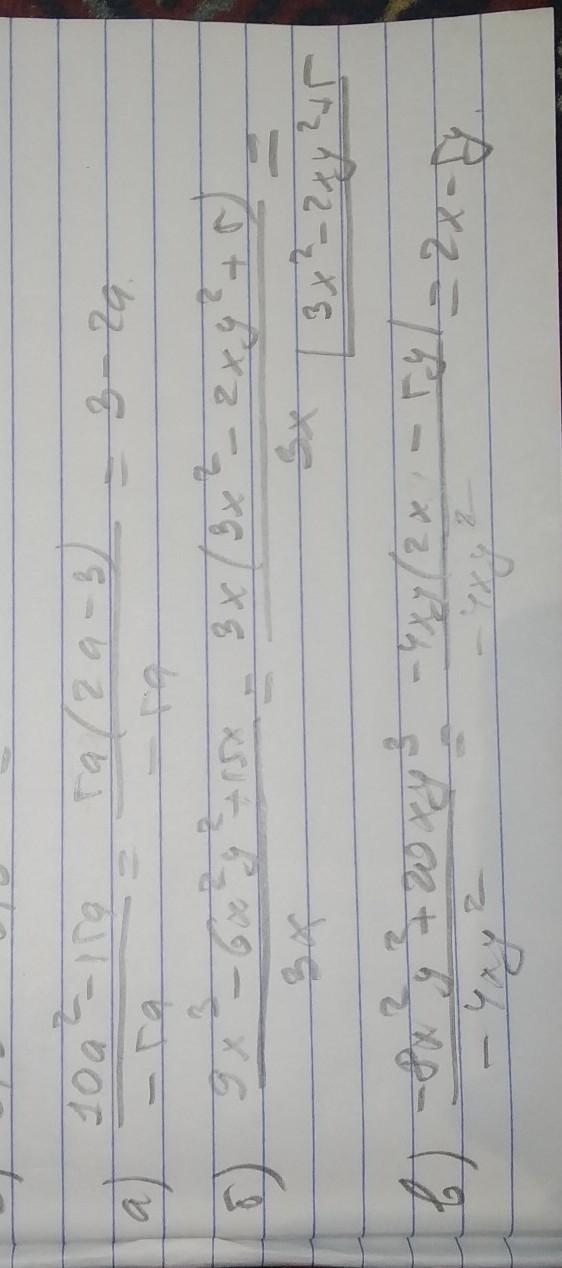 а) (10a² - 15a)/(-5a) = (5a(2a - 3))/(-5a) = 3 - 2a.
б) (9x³ - 6x²y² + 15x)/(3x) = (3x(3x² - 2xy² + 5))/(3x) =
3x² - 2xy² + 5
в) (-8x²y² + 20xy³)/(-4xy²) = (-4xy(2x - 5y))/(-4xy²) = 2x - 5y.